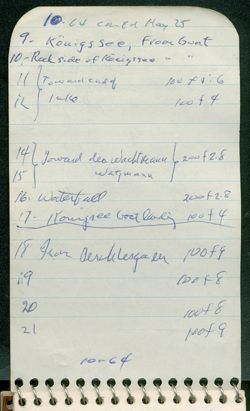 10-64 May 25
9- Königssee, From Boat
10- Rock side of Königssee " "
11 Toward end 100 f 5.6
12 Lake 100 f 4
14 Toward des Wachtmann 200 f 2.8
15 Watzmann
16- Waterfall 200 f 2.8
17- Königsee Boat landing 100 f 4
18 From Berchtesgaden 100 f 9
19 100 f 8
20 100 f 8
21 100 f 9
10-64